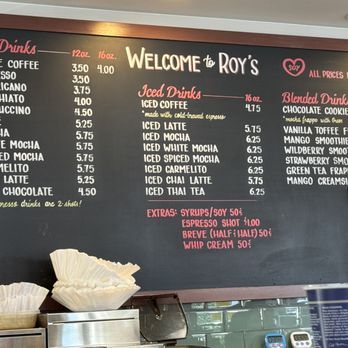 Welcome to Roy's
Drinks
12oz. 16oz.
COFFEE 3.50 4.00
3.50
3.75
4.25
4.50
5.25
5.75
MOCHA 5.75
MOCHA 5.75
5.75
LATTE 5.25
CHOCOLATE 4.50
drinks are 2 shots!
Iced Drinks
16oz.
ICED COFFEE 4.75
*made with cold-brewed espresso
ICED LATTE 5.75
ICED MOCHA 6.25
ICED WHITE MOCHA 6.25
ICED SPICED MOCHA 6.25
ICED CARMELITO 6.25
ICED CHAI LATTE 5.75
ICED THAI TEA 6.25
EXTRAS: SYRUPS/SOY 50¢
ESPRESSO SHOT $1.00
BREVE (HALF & HALF) 50¢
WHIP CREAM 50¢
ROY
ALL PRICES
Blended Drinks
CHOCOLATE COOKIE
VANILLA TOFFEE
MANGO SMOOTHIE
WILDBERRY SMOO
STRAWBERRY SM
GREEN TEA FRAP
MANGO CREAMS